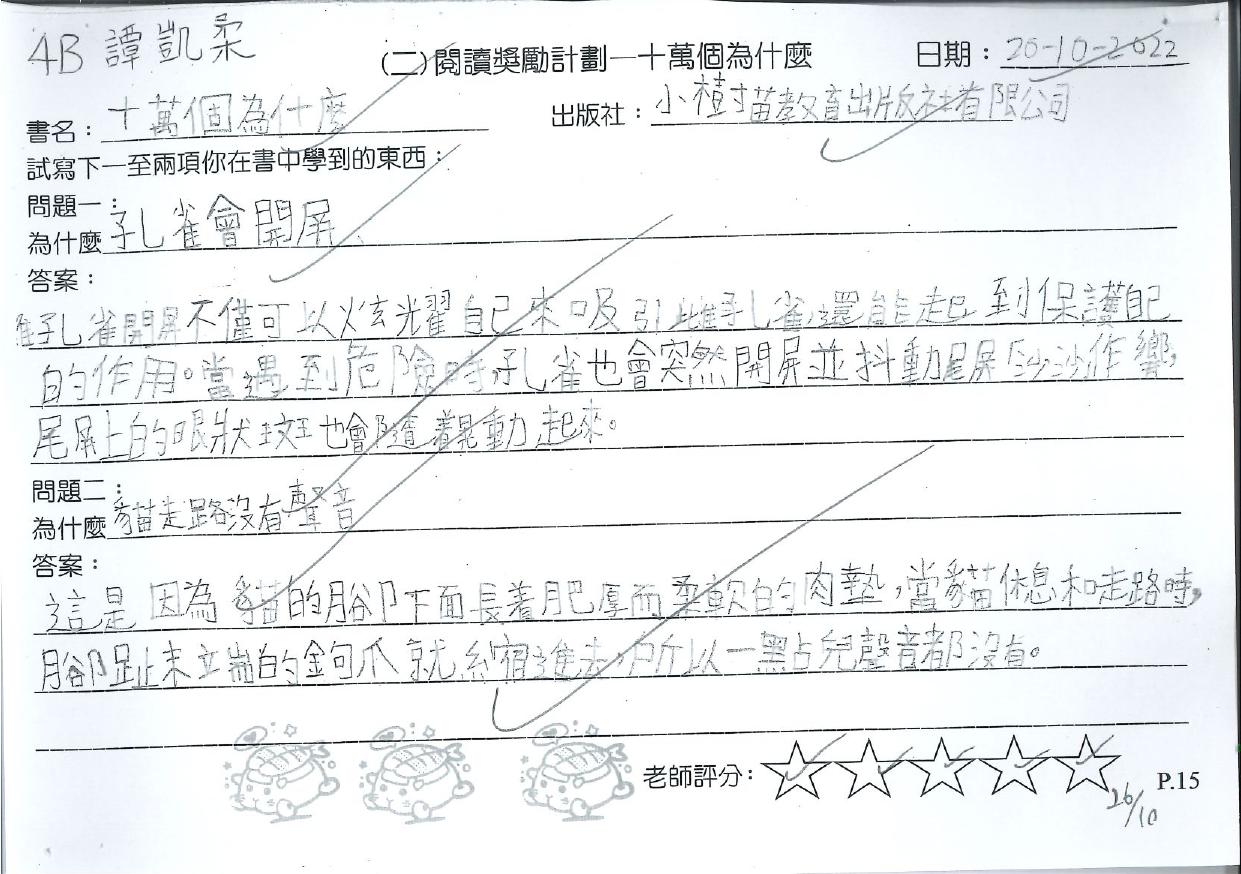 4B 譚凱柔
(二)閱讀獎勵計劃—十萬個為什麼
日期：20-10-2022
書名：十萬個為什麼
出版社：小樹苗教育出版社有限公司
試寫下一至兩項你在書中學到的東西：
問題一：
為什麼孔雀會開屏
答案：
雄孔雀開屏不僅可以炫光耀自己來吸引雌孔雀,還能起到保護自己
的作用。當遇到危險時,孔雀也會突然開屏並抖動尾屏「沙沙作響,
尾屏上的眼狀玟也會隨着晃動起來。
問題二：
為什麼貓走路沒有聲音
答案：
這是因為貓的腳下面長着肥厚而柔軟的肉墊,當貓休息和走路時,
腳趾末端的鉤爪就縮進去,所以一點兒聲音都沒有。
老師評分：
26/10
P.15